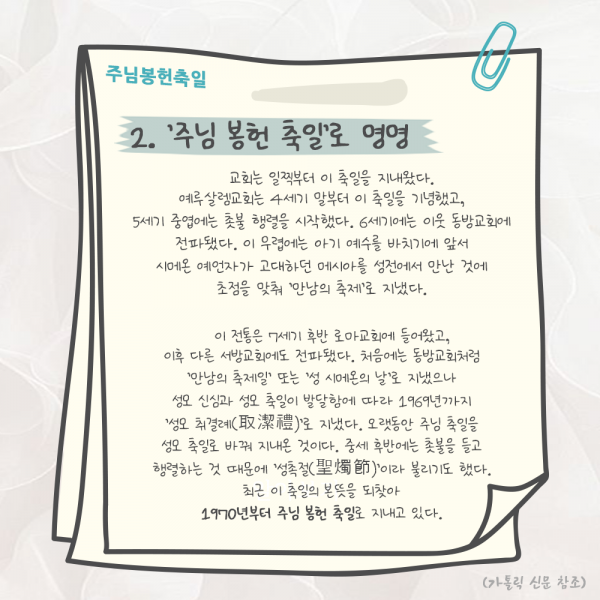 주님봉헌축일
2. '주님 봉헌 축일'로 명명
교회는 일찍부터 이 축일을 지내왔다.
예루살렘교회는 4세기 말부터 이 축일을 기념했고,
5세기 중엽에는 촛불 행렬을 시작했다. 6세기에는 이웃 동방교회에
전파됐다. 이 무렵에는 아기 예수를 바치기에 앞서
시메온 예언자가 고대하던 메시아를 성전에서 만난 것에
초점을 맞춰 '만남의 축제'로 지냈다.
이 전통은 7세기 후반 로마교회에 들어왔고,
이후 다른 서방교회에도 전파됐다. 처음에는 동방교회처럼
'만남의 축제일' 또는 '성 시메온의 날'로 지냈으나
성모 신심과 성모 축일이 발달함에 따라 1969년까지
'성모 취결례(取潔禮)'로 지냈다. 오랫동안 주님 축일을
성모 축일로 바꿔 지내온 것이다. 중세 후반에는 촛불을 들고
행렬하는 것 때문에 '성촉절(聖燭節)'이라 불리기도 했다.
최근 이 축일의 본뜻을 되찾아
1970년부터 주님 봉헌 축일로 지내고 있다.
(가톨릭 신문 참조)